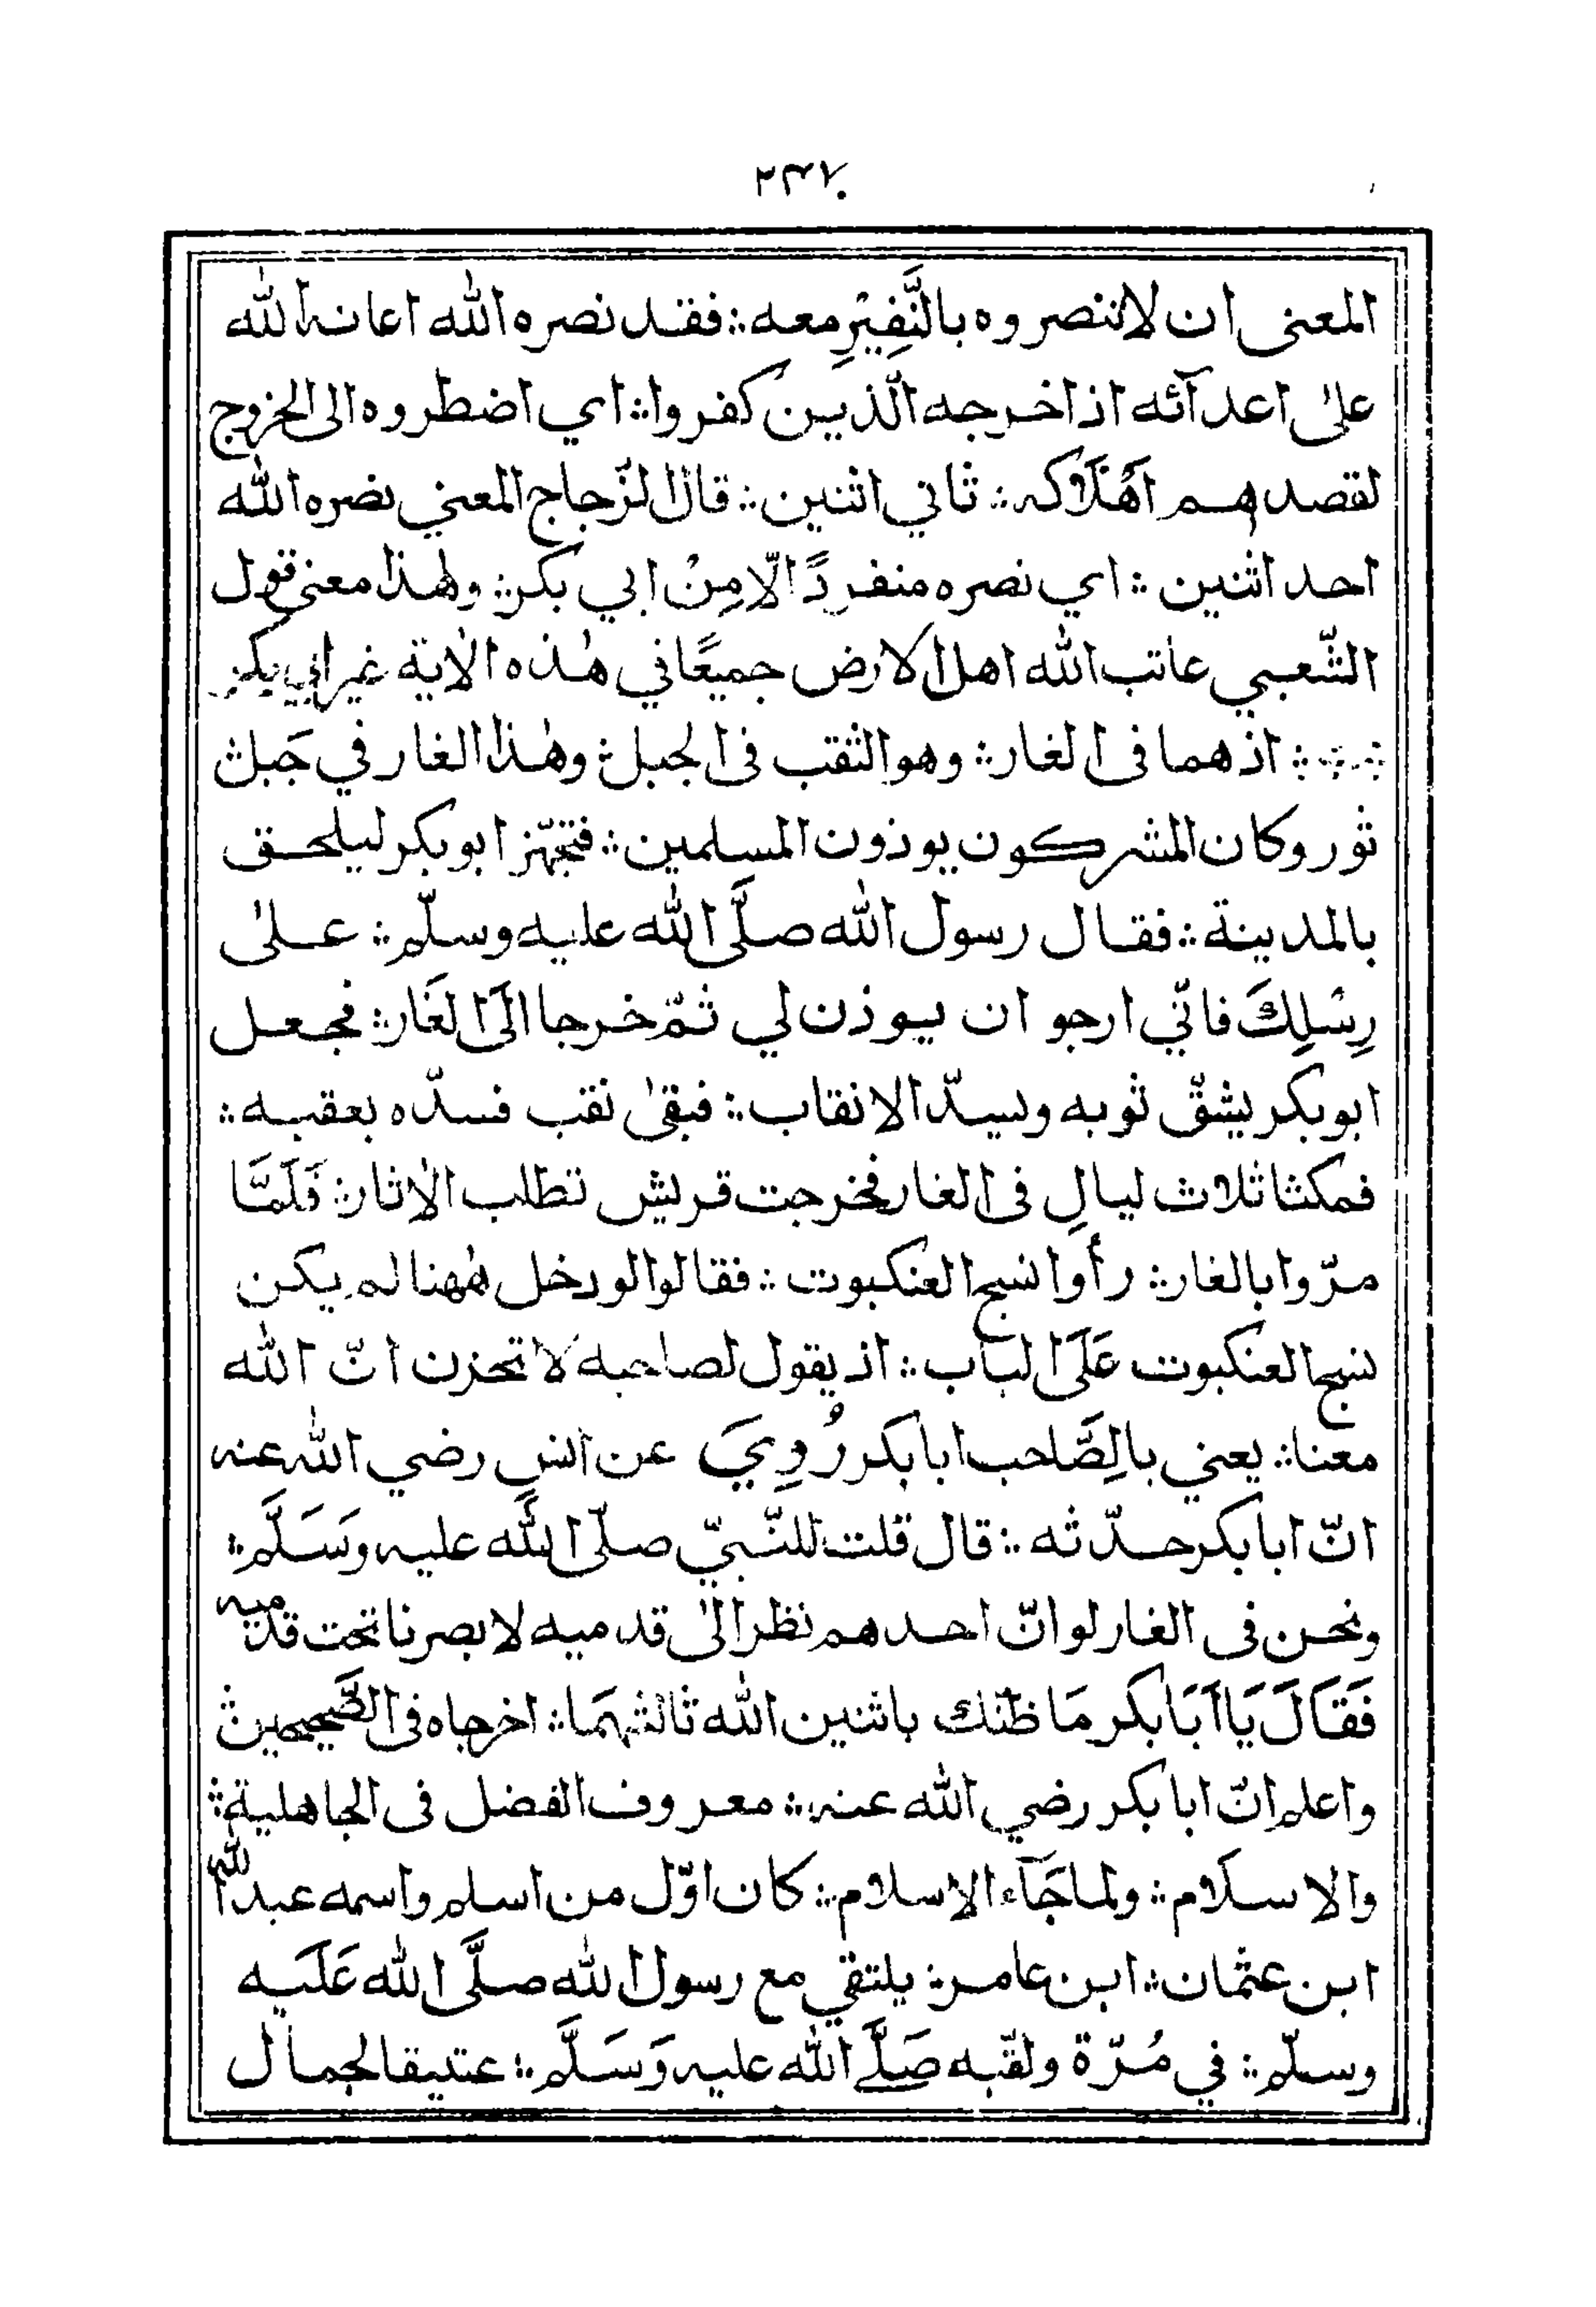 ٢٣٧
المعنى ان لاتنصروه بالنَّفِيْرِ معه ؞ فقد نصره الله اعانه الله
على اعدآئه اذ اخرجه الّذين كفروا ؞ اي اضطروه الى الخروج
لقصدهم اَهْلَاكه ؞ ثاني اثنين ؞ قال الزّجاج المعني نصره الله
احد اثنين ؞ اي نصره منفردًا الّا مِنْ ابي بكر ؞ وهٰذا معنى قول
الشّعبي عاتب الله اهل الارض جميعًا في هٰذه الاٰية غير ابي بكر
؞ ؞ اذ هما فى الغار ؞ وهو الثقب فى الجبل ؞ وهٰذا الغار في جَبل ؞
ثور وكان المشركون يوذون المسلمين ؞ فتجهّز ابو بكر ليلحق
بالمدينة ؞ فقال رسول الله صلَّى الله عليه وسلّم ؞ على
رِسْلِكَ فانّي ارجو ان يوذن لي ثمّ خرجا الَى الغَار ؞ فجعل
ابو بكر يشقّ ثوبه ويسدّ الانقاب ؞ فبقى نقب فسدّه بعقبه ؞
فمكثا ثلاث ليالِ فى الغار فخرجت قريش تطلب الاٰثار ؞ فَلَمَّا
مرّوا بالغار ؞ رأوا نسج العنكبوت ؞ فقالوا لو دخل هٰهنا لم يكن
نسج العنكبوت عَلَى الباب ؞ اذ يقول لصاحبه لا تحزن انّ الله
معنا ؞ يعني بالصَّاحب ابا بكر رُوِيَ عن انسٍ رضي الله عنه
انّ ابا بكر حدّثه ؞ قال قلت للنّبيّ صلّى الله عليه وَسَلَّم ؞
ونحن فى الغار لو انّ احدهم نظر الٰى قدميه لابصرنا تحت قدميه
فَقَالَ يَا اَبَا بكر مَا ظنّك باثنين الله ثالثهمَا ؞ اخرجاه فى الصَّحيحين ؞
واعلم انّ ابا بكر رضي الله عنه ؞ معروف الفضل فى الجاهلية ؞
والاسلَام ؞ ولما جَآء الاسلام ؞ كان اوّل من اسلم واسمه عبد الله
ابن عثمان ؞ ابن عامر ؞ يلتقي مع رسول الله صلَّى الله عَلَيه
وسلّم ؞ في مُرّة ولقّبه صَلَّى الله عليه وَسَلَّم ؞ عتيقا لجمال